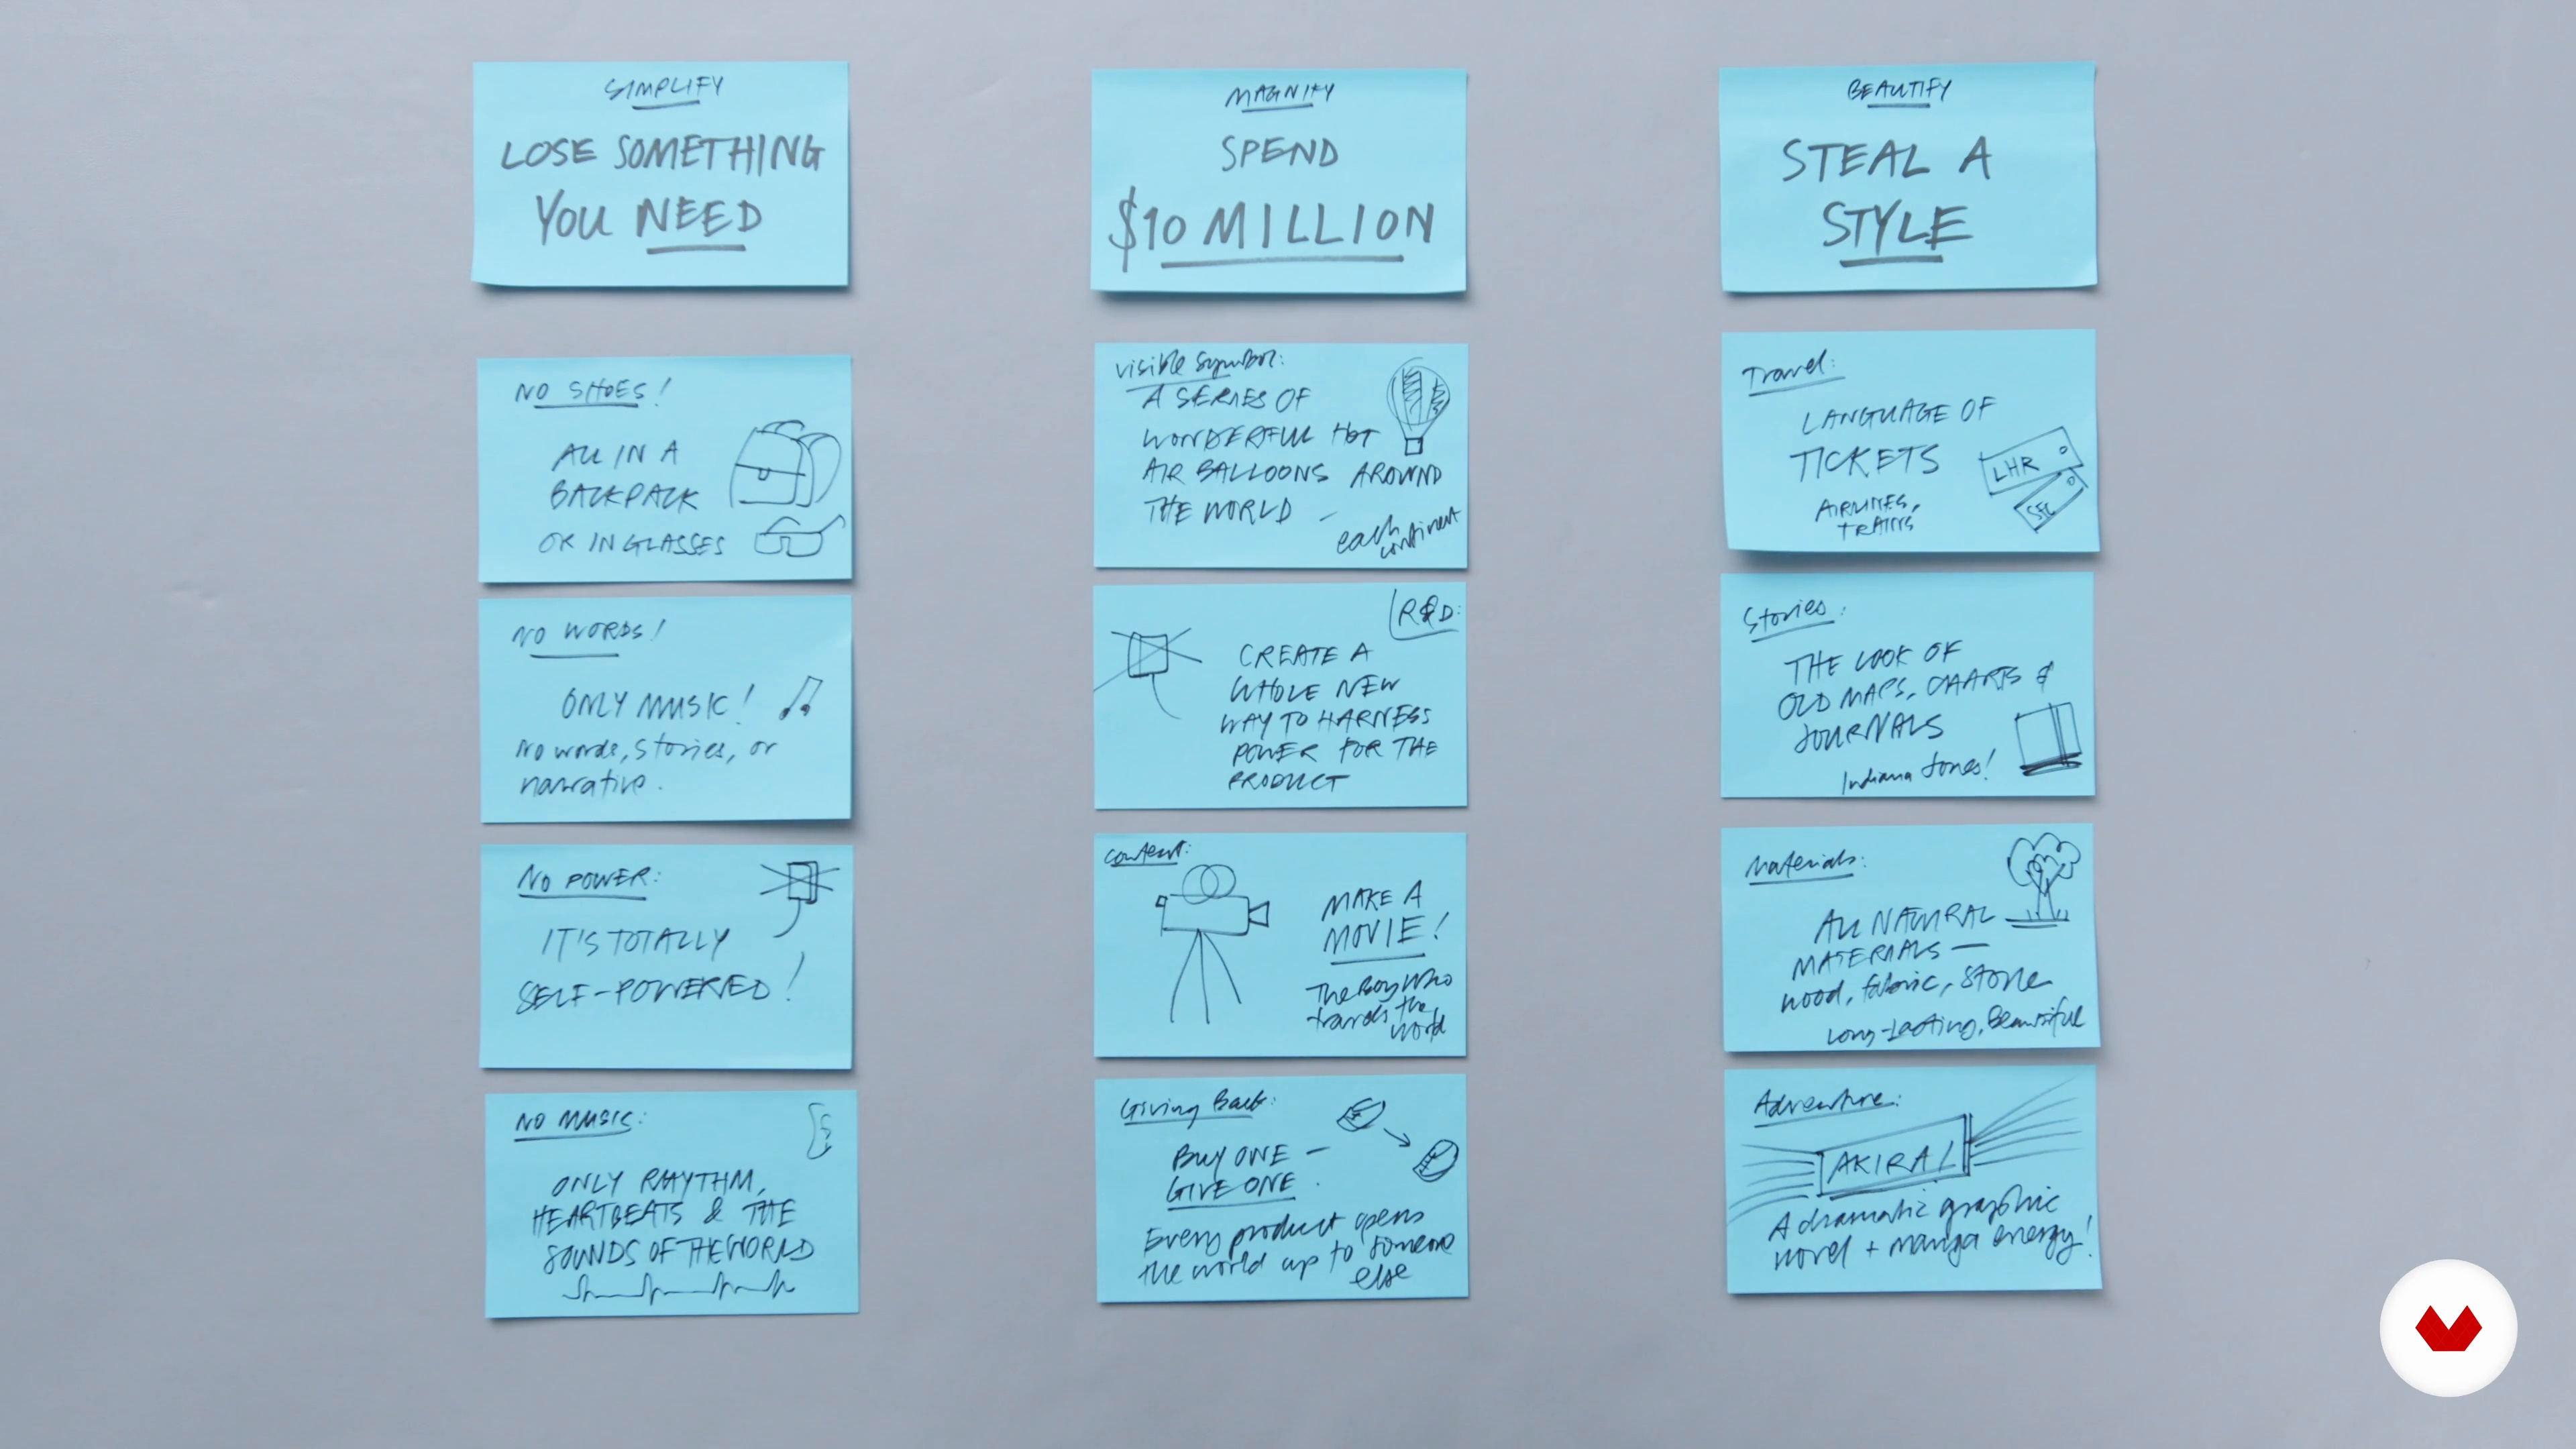 SIMPLIFY
LOSE SOMETHING
YOU NEED
NO SHOES!
ALL IN A
BACKPACK
OR IN GLASSES
NO WORDS!
ONLY MUSIC!
No words, stories, or
narrative.
NO POWER:
IT'S TOTALLY
SELF-POWERED!
NO MUSIC:
ONLY RHYTHM,
HEARTBEATS & THE
SOUNDS OF THE WORLD
MAGNIFY
SPEND
$10 MILLION
visible symbol:
A SERIES OF
WONDERFUL HOT
AIR BALLOONS AROUND
THE WORLD –
each
continent
R&D:
CREATE A
WHOLE NEW
WAY TO HARNESS
POWER FOR THE
PRODUCT
content:
MAKE A
MOVIE!
The Boy Who
travels the
world
Giving Back:
BUY ONE –
GIVE ONE.
Every product opens
the world up to someone
else
BEAUTIFY
STEAL A
STYLE
Travel:
LANGUAGE OF
TICKETS
AIRLINES,
TRAINS
LHR
Stories:
THE LOOK OF
OLD MAPS, CHARTS &
JOURNALS
Indiana Jones!
Materials:
ALL NATURAL
MATERIALS —
wood, fabric, stone
Long-Lasting, Beautiful
Adventure:
AKIRA!
A dramatic graphic
novel + manga energy!